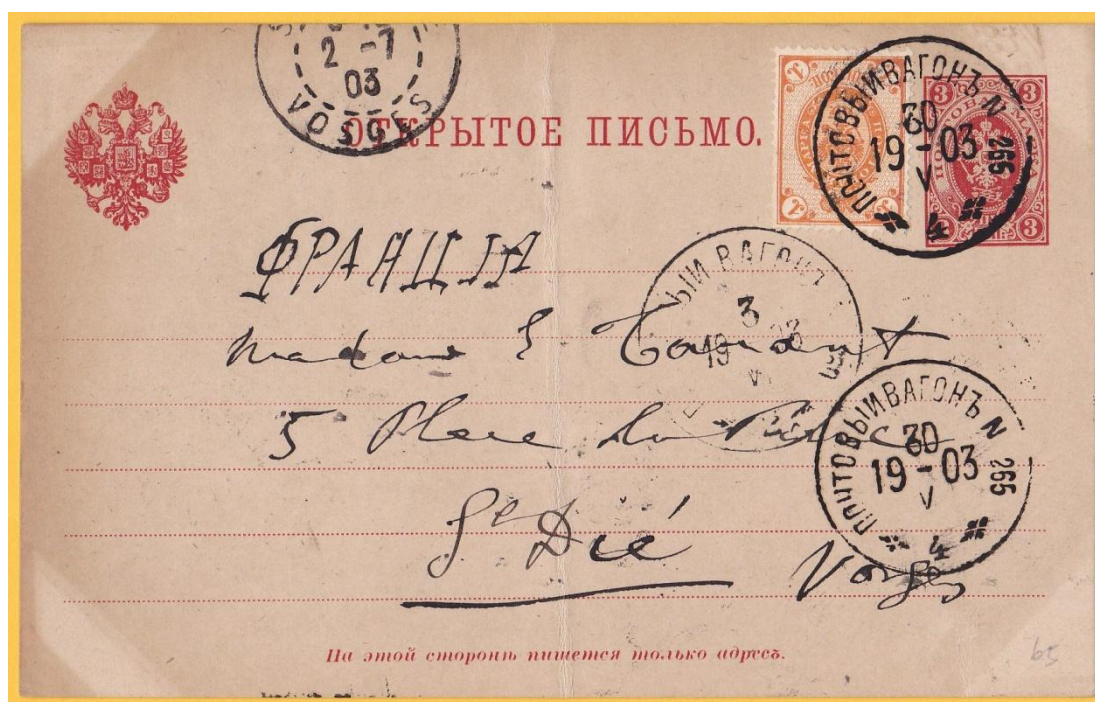 2 -7
03
VOSGES
ОТКРЫТОЕ ПИСЬМО.
ПОЧТОВЫЙ ВАГОНЪ N 265
30
19 - 03
V
4
3 3
3 3
1 1
1 1
МАРКА
ФРАНЦІЯ
ЫЙ ВАГОНЪ
3
19 03
V
Madame E
5 Place du
St Dié
Vosges
ПОЧТОВЫЙ ВАГОНЪ N 265
30
19 - 03
V
4
На этой сторонѣ пишется только адресъ.
65